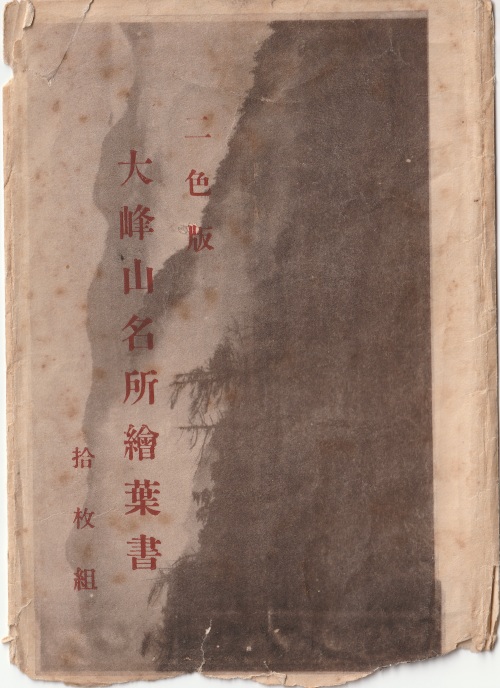 二色版
大峰山名所繪葉書
拾枚組